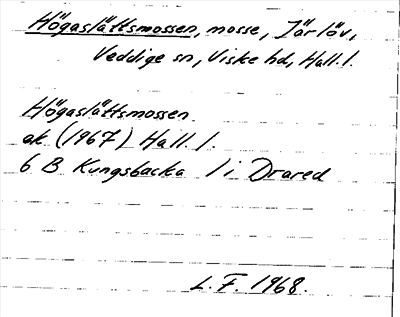 Högaslättsmossen, mosse, Järlöv,
Veddige sn, Viske hd, Hall. l.
Högaslättsmossen
ek (1967) Hall. l.
6 B Kungsbacka / i Drared
L.F. 1968.